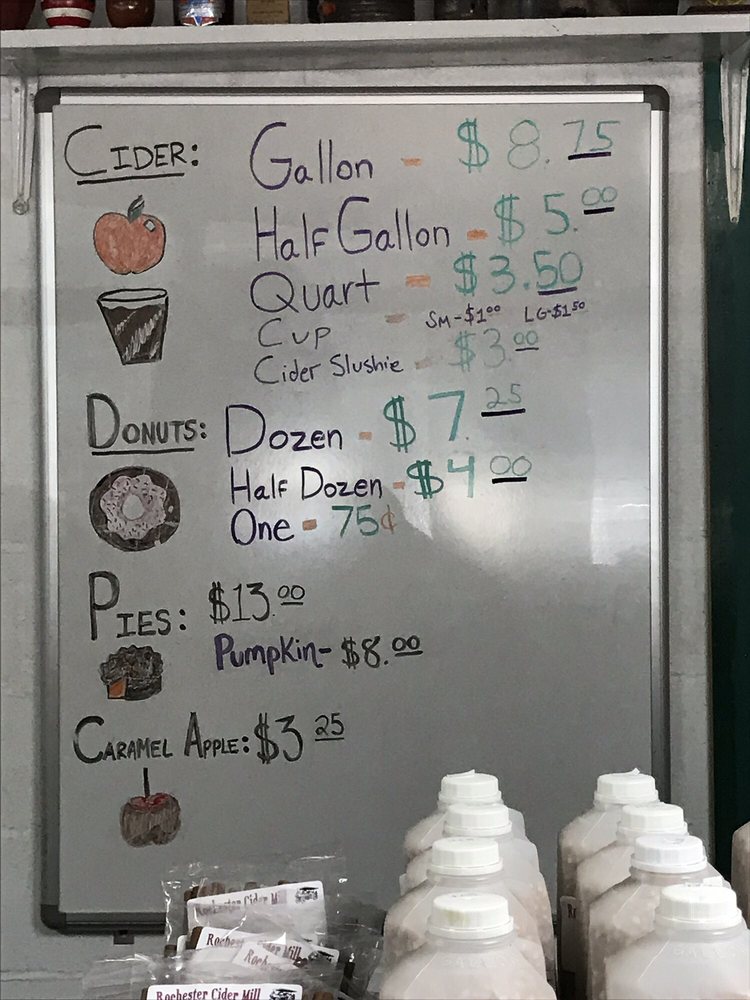 CIDER: Gallon - $8.75
Half Gallon - $5.00
Quart - $3.50
Cup - SM-$1.00 LG-$1.50
Cider Slushie - $3.00
DONUTS: Dozen - $7.25
Half Dozen - $4.00
One - 75¢
PIES: $13.00
Pumpkin- $8.00
CARAMEL APPLE: $3.25
Rochester Cider M
Rochest
Roch Mill
Rochester Cider Mill